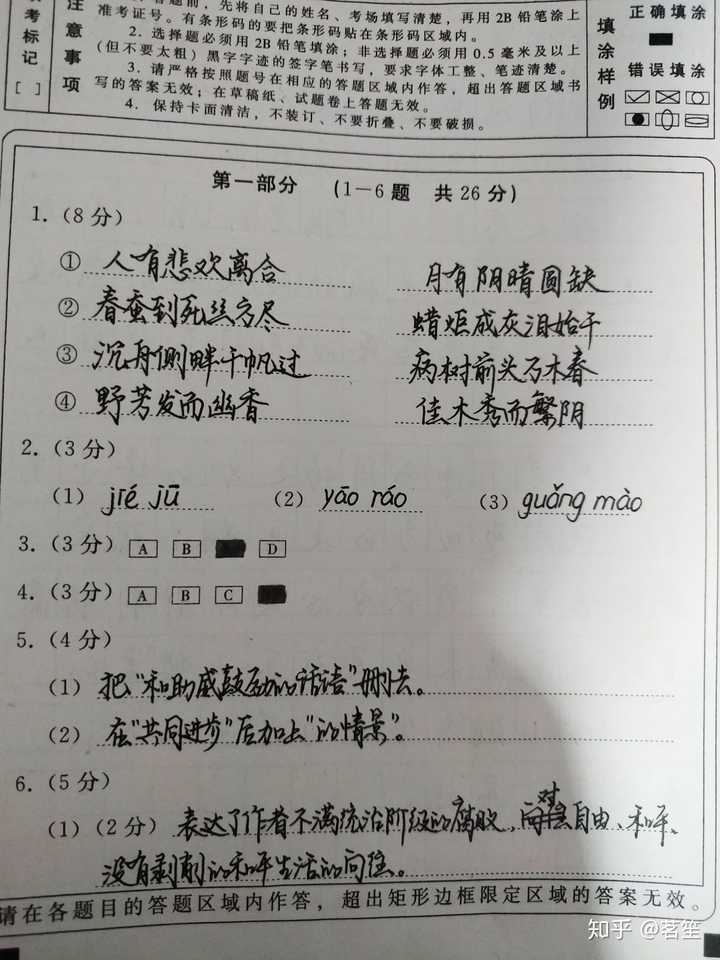 考标记
[ ]
注意事项
答题前，先将自己的姓名、考场填写清楚，再用 2B 铅笔涂上
准考证号。有条形码的要把条形码贴在条形码区域内。
2. 选择题必须用 2B 铅笔填涂；非选择题必须用 0.5 毫米及以上
(但不要太粗) 黑字字迹的签字笔书写，要求字体工整、笔迹清楚。
3. 请严格按照题号在相应的答题区域内作答，超出答题区域书
写的答案无效；在草稿纸、试题卷上答题无效。
4. 保持卡面清洁，不装订、不要折叠、不要破损。
填涂样例
正确填涂
错误填涂
第一部分 (1—6 题 共 26 分)
1. (8 分)
① 人有悲欢离合 月有阴晴圆缺
② 春蚕到死丝方尽 蜡炬成灰泪始干
③ 沉舟侧畔千帆过 病树前头万木春
④ 野芳发而幽香 佳木秀而繁阴
2. (3 分)
(1) jié jū (2) yāo ráo (3) guǎng mào
3. (3 分) A B D
4. (3 分) A B C
5. (4 分)
(1) 把“和助威鼓劲的话语”删去。
(2) 在“共同进步”后加上“的情景”。
6. (5 分)
(1) (2 分) 表达了作者不满统治阶级的腐败、对自由、和平、
没有剥削的和平生活的向往。
请在各题目的答题区域内作答，超出矩形边框限定区域的答案无效。
知乎 @茗笙